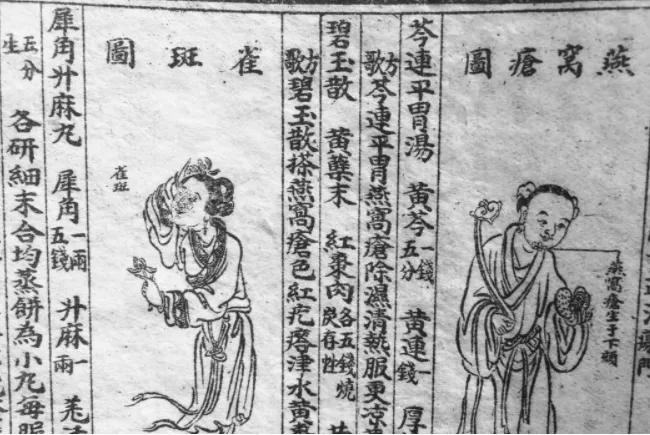 燕窩瘡圖
燕窩瘡生于下頦
芩連平胃湯 黃芩一錢五分 黃連一錢 厚
方歌 芩連平胃燕窩瘡除濕清熱服更涼
碧玉散 黃蘗末 紅棗肉各五錢燒炭存性
方歌 碧玉散搽燕窩瘡色紅疙瘩津水黃棗
雀斑圖
雀斑
犀角升麻丸 犀角一兩五錢 升麻一兩 羌
五分生 各研細末合均蒸餅為小丸每服